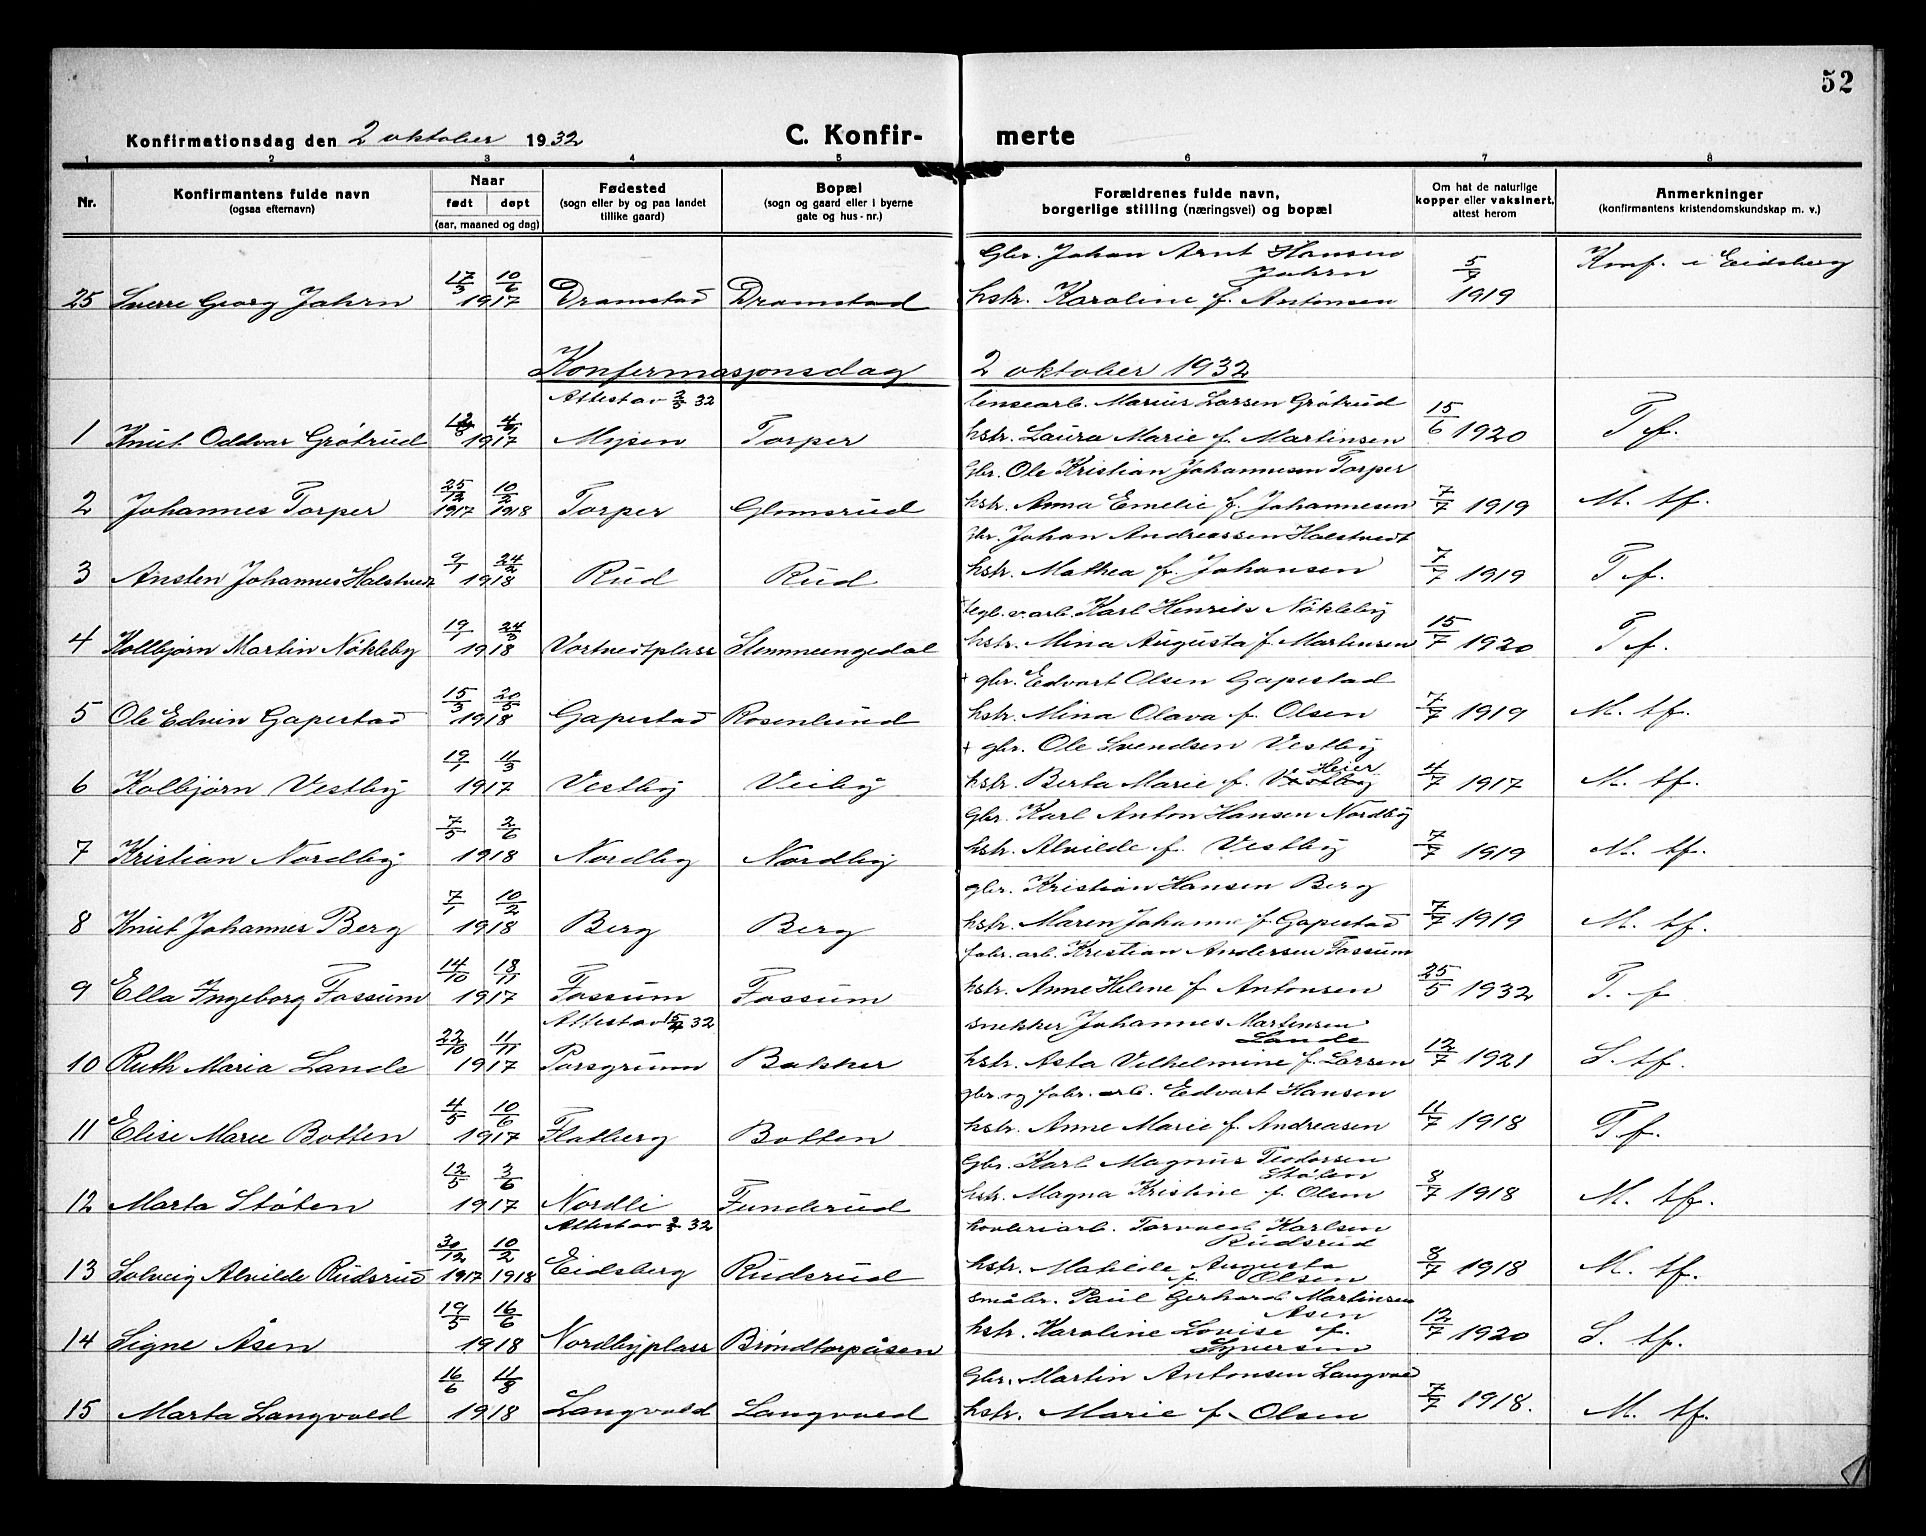 52
Konfirmationsdag den 2 oktober 1932
C. Konfir- merte
1 2 3 4 5 6 7 8
Nr.
Konfirmantens fulde navn
(ogsaa efternavn)
Naar
født døpt
(aar, maaned og dag)
Fødested
(sogn eller by og paa landet
tillike gaard)
Bopæl
(sogn og gaard eller i byerne
gate og hus-nr.)
Forældrenes fulde navn,
borgerlige stilling (næringsvei) og bopæl
Om hat de naturlige
kopper eller vaksinert,
attest herom
Anmerkninger
(konfirmantens kristendomskundskap m. v.)
Gbr. Johan Arnt Hansen
Jahrn
25 Sverre Georg Jahrn 17/3 10/6 1917 Dramstad Dramstad hstr. Karoline f. Antonsen 5/9 1919 Konf. i Eidsberg
Konfermasjonsdag 2 oktober 1932
Attest av 32 lensearb. Marius Larsen Grøtrud
1 Knut Oddvar Grøtrud 1917 Mysen Torper hstr. Laura Marie f. Martinsen 15/6 1920 T f.
Gbr. Ole Kristian Johannesen Torper
2 Johannes Torper 25/12 1917 10/2 1918 Torper Glomsrud hstr. Anna Emelie f. Johannesen 7/7 1919 M. tf.
Gbr. Johan Andreassen Halstvedt
3 Ansten Johannes Halstvedt 9/1 24/2 1918 Rud Rud hstr. Mathea f. Johansen 7/7 1919 T f.
Karl Henrik Nøkleby
4 Kollbjørn Martin Nøkleby 19/1 24/3 1918 Vortvedtplass Slemmeengedal hstr. Mina Augusta f. Martinsen 15/7 1920 T f.
+ gbr. Edvart Olsen Gapestad
5 Ole Edvin Gapestad 15/3 20/5 1918 Gapestad Rosenlund hstr. Mina Olava f. Olsen 7/7 1919 M. tf.
+ gbr. Ole Svendsen Vestby
6 Kolbjørn Vestby 19/1 11/3 1917 Vestby Veiby hstr. Berta Marie f. Vestby Heier 4/7 1917 M. tf.
Gbr. Karl Anton Hansen Nordby
7 Kristian Nordby 7/5 2/6 1918 Nordby Nordby hstr. Alvilde f. Vestby 7/7 1919 M. tf.
gbr. Kristian Hansen Berg
8 Knut Johannes Berg 7/1 10/2 1918 Berg Berg hstr. Maren Johanne f. Gapestad 7/7 1919 M. tf.
fabr. arb. Kristian Andersen Fossum
9 Ella Ingeborg Fossum 14/10 18/11 1917 Fossum Fossum hstr. Anne Helene f Antonsen 25/5 1932 T. f
Attest av 32 snekker Johannes Martinsen
Lande
10 Ruth Maria Lande 22/10 11/11 1917 Porsgrunn Bakker hstr. Asta Vilhelmine f. Larsen 12/7 1921 S. tf.
gbr. og fabr. arb. Edvart Hansen
11 Elise Marie Botten 4/5 10/6 1917 Flatberg Botten hstr. Anne Marie f. Andreasen 11/7 1918 T f.
Gbr. Karl Magnus Teodorsen
Støten
12 Marta Støten 12/5 3/6 1917 Nordli Funderud hstr. Magna Kristine f. Olsen 8/7 1918 M. tf.
Attest av 32 Torvald Karlsen
Rudsrud
13 Solveig Alvilde Rudsrud 30/12 1917 10/2 1918 Eidsberg Rudsrud hstr. Matilde Augusta
f. Olsen 8/7 1918 M. tf.
småbr. Paul Gerhard Martinsen
Åsen
14 Signe Åsen 19/5 16/6 1918 Nordbyplass Brøndtorpåsen hstr. Karoline Lovise f.
Syversen 12/7 1920 S. tf.
Gbr. Martin Antonsen Langvold
15 Marta Langvold 16/6 11/8 1918 Langvold Langvold hstr. Marie f. Olsen 7/7 1918. M. tf.